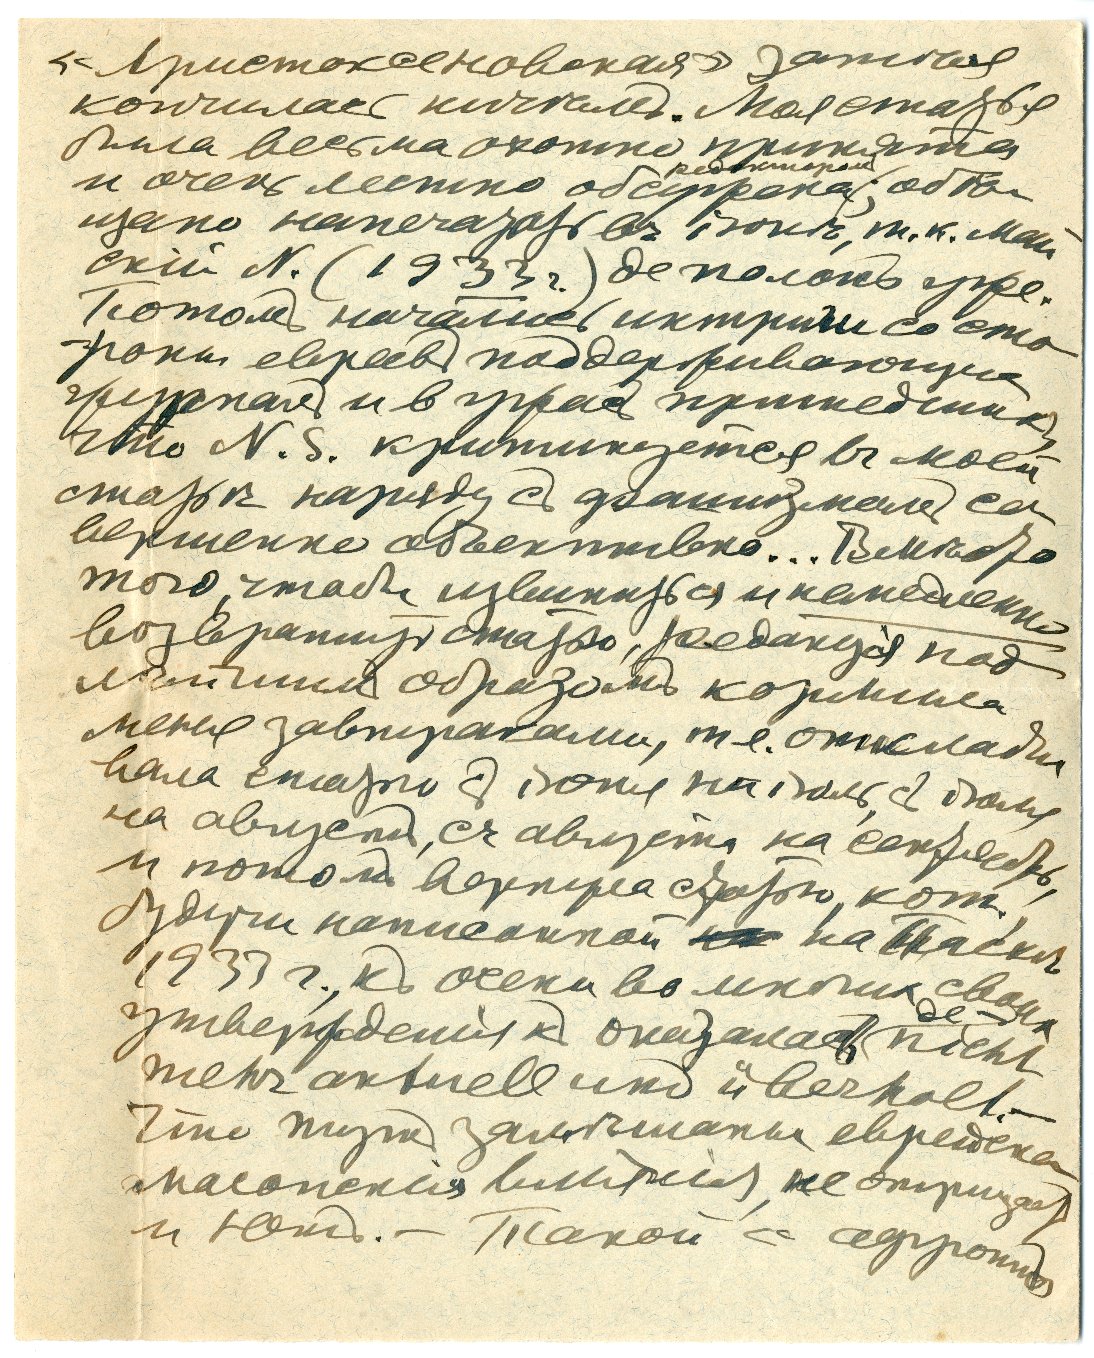 «Аристоксеновская» затѣя
кончилась ничѣмъ. Моя статья
была весьма охотно принята
и очень лестно обсуждена редакторомъ; обѣ-
щано напечатать въ іюнѣ, т.к. май-
скій N. (1933 г.) де полонъ уже.
Потомъ начались интриги со сто-
роны евреевъ поддерживающихъ
журналъ и въ ужасъ пришедшихъ,
что N.S. критикуется въ моей
статьѣ наряду съ фашизмомъ со-
вершенно объективно... Вмѣсто
того, чтобы извиниться и немедленно
возвратить статью, редакція под-
лѣйшимъ образомъ кормила
меня завтраками, т.е. откладеы-
вала статью съ іюня на іюль, съ іюля
на августъ, съ августа на сентябрь,
и потомъ вернула статью, кот.,
будучи написанной на Пасхѣ
1933 г., въ очень во многихъ своихъ
утвержденіяхъ оказалась де nicht
mehr aktuell und überholt. —
Что тутъ замѣшаны еврейско-
масонскія вліянія, не отрицаетъ
и Юнъ. — Такой « афронтъ